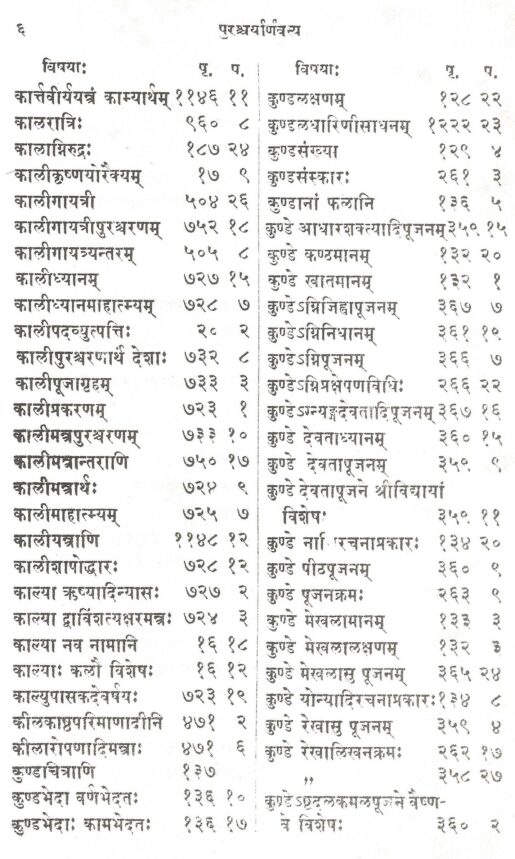 ६ पुरश्चर्यार्णवस्य
विषयाः पृ. प.
कार्त्तवीर्ययन्त्रं काम्यार्थम् ११४६ ११
कालरात्रिः ९६० ८
कालाग्निरुद्रः १८७ २४
कालीकृष्णयोरैक्यम् १७ ९
कालीगायत्री ५०४ २६
कालीगायत्रीपुरश्चरणम् ७५२ १८
कालीगायत्र्यन्तरम् ५०५ ८
कालीध्यानम् ७२७ १५
कालीध्यानमाहात्म्यम् ७२८ ७
कालीपदव्युत्पत्तिः २० २
कालीपुरश्चरणार्थ देशाः ७३२ ८
कालीपूजागृहम् ७३३ ३
कालीप्रकरणम् ७२३ १
कालीमन्त्रपुरश्चरणम् ७३३ १०
कालीमन्त्रान्तराणि ७५० १७
कालीमन्त्रार्थः ७२४ ९
कालीमाहात्म्यम् ७२५ ७
कालीयन्त्राणि ११४८ १२
कालीशापोद्धारः ७२८ १२
काल्या ऋष्यादिन्यासः ७२७ २
काल्या द्वाविंशत्यक्षरमन्त्रः ७२४ ३
काल्या नव नामानि १६ १८
काल्याः कलौ विशेषः १६ १२
काल्युपासकदेवर्षयः ७२३ १९
कीलकाष्ठपरिमाणादीनि ४७१ २
कीलारोपणादिमन्त्राः ४७१ ६
कुण्डचित्राणि १३७
कुण्डभेदा वर्णभेदतः १३६ १०
कुण्डभेदाः कामभेदतः १३६ १७
विषयाः पृ. प.
कुण्डलक्षणम् १२८ २२
कुण्डलधारिणीसाधनम् १२२२ २३
कुण्डसंख्या १२९ ४
कुण्डसंस्कारः २६१ ३
कुण्डानां फलानि १३६ ५
कुण्डे आधारशक्त्यादिपूजनम् ३५९ १५
कुण्डे कण्ठमानम् १३२ २०
कुण्डे खातमानम् १३२ १
कुण्डेऽग्निजिह्वापूजनम् ३६७ ७
कुण्डेऽग्निनिधानम् ३६१ १९
कुण्डेऽग्निपूजनम् ३६६ ७
कुण्डेऽग्निप्रक्षेपणविधिः २६६ २२
कुण्डेऽग्न्यङ्गदेवतादिपूजनम् ३६७ १६
कुण्डे देवताध्यानम् ३६० १५
कुण्डे देवतापूजनम् ३५९ ९
कुण्डे देवतापूजने श्रीविद्यायां
विशेषः ३५९ ११
कुण्डे रचनाप्रकारः १३४ २०
कुण्डे पीठपूजनम् ३६० ९
कुण्डे पूजनक्रमः २६३ ९
कुण्डे मेखलामानम् १३३ ३
कुण्डे मेखलालक्षणम् १३२ ३
कुण्डे मेखलासु पूजनम् ३६५ २४
कुण्डे योन्यादिरचनाप्रकारः १३४ ८
कुण्डे रेखासु पूजनम् ३५९ ४
कुण्डे रेखालिखनक्रमः २६२ १७
,, ३५८ २७
कुण्डेऽष्टदलकमलपूजने वैष्ण-
वे विशेषः ३६० २